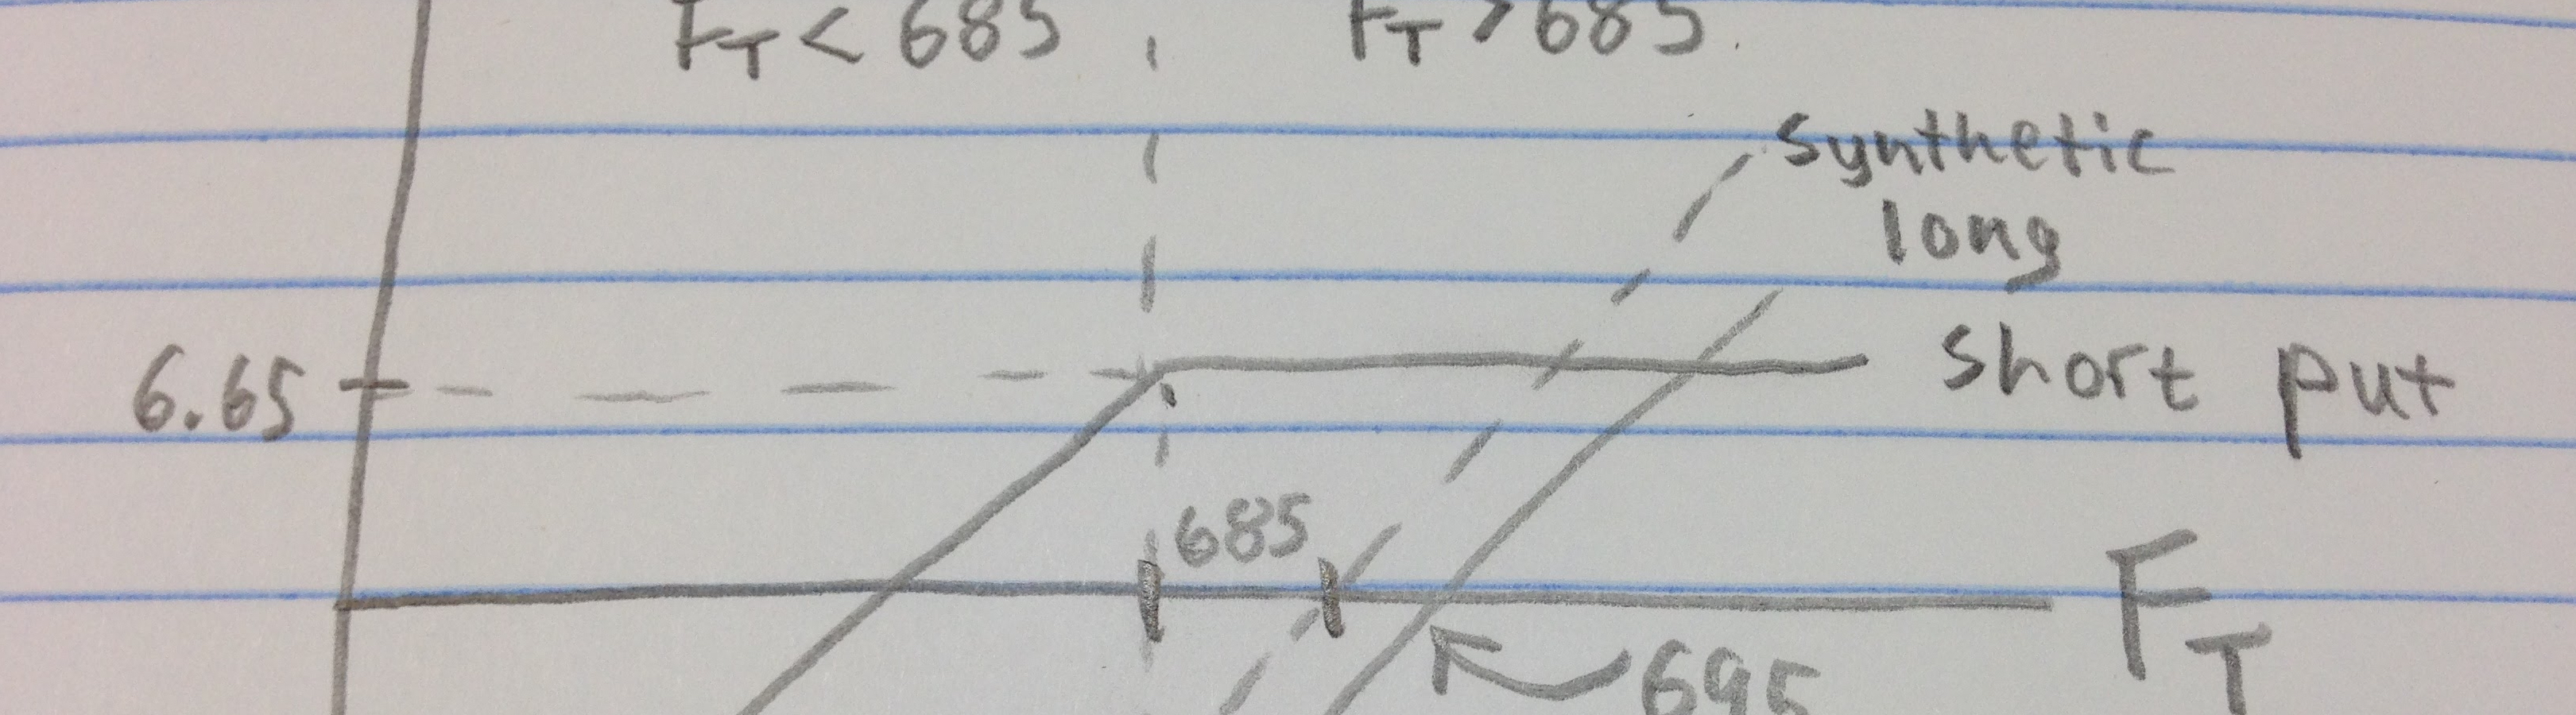 F_T < 685 F_T > 685
synthetic
long
short put
6.65
685
F_T
695